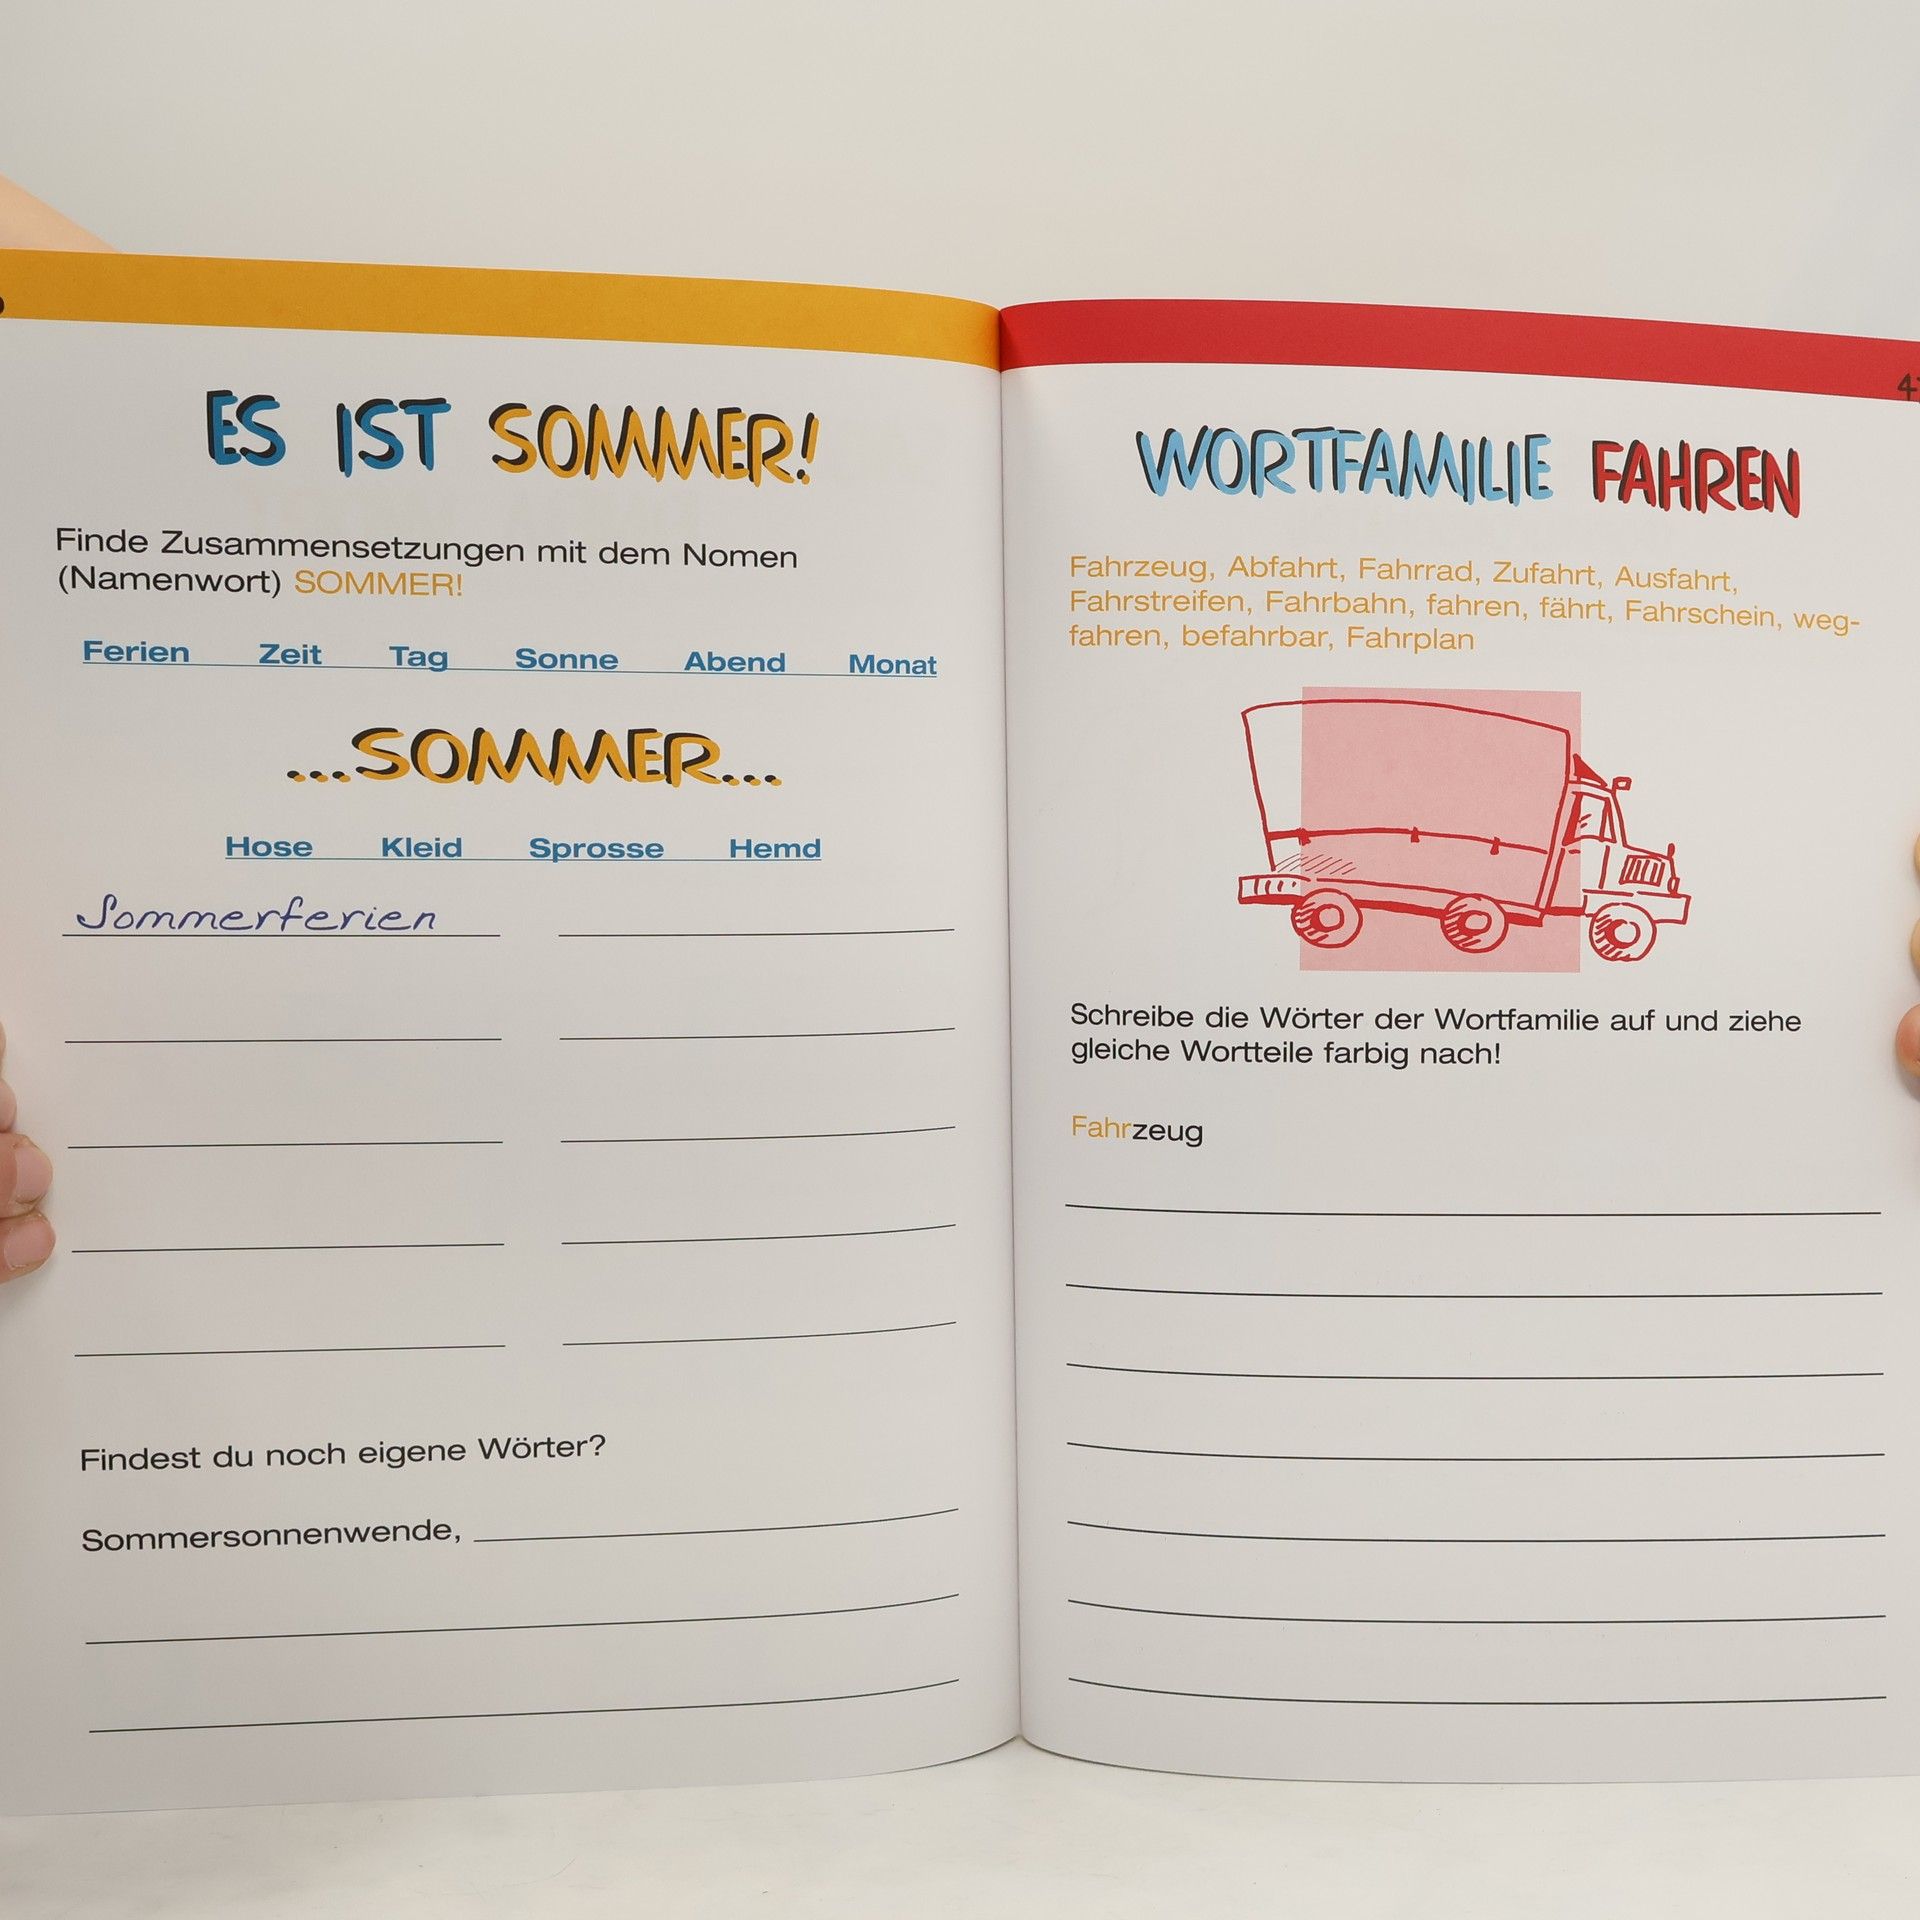 ES IST SOMMER!
Finde Zusammensetzungen mit dem Nomen
(Namenwort) SOMMER!
Ferien Zeit Tag Sonne Abend Monat
...SOMMER...
Hose Kleid Sprosse Hemd
Sommerferien
Findest du noch eigene Wörter?
Sommersonnenwende,
WORTFAMILIE FAHREN
Fahrzeug, Abfahrt, Fahrrad, Zufahrt, Ausfahrt,
Fahrstreifen, Fahrbahn, fahren, fährt, Fahrschein, weg-
fahren, befahrbar, Fahrplan
Schreibe die Wörter der Wortfamilie auf und ziehe
gleiche Wortteile farbig nach!
Fahrzeug